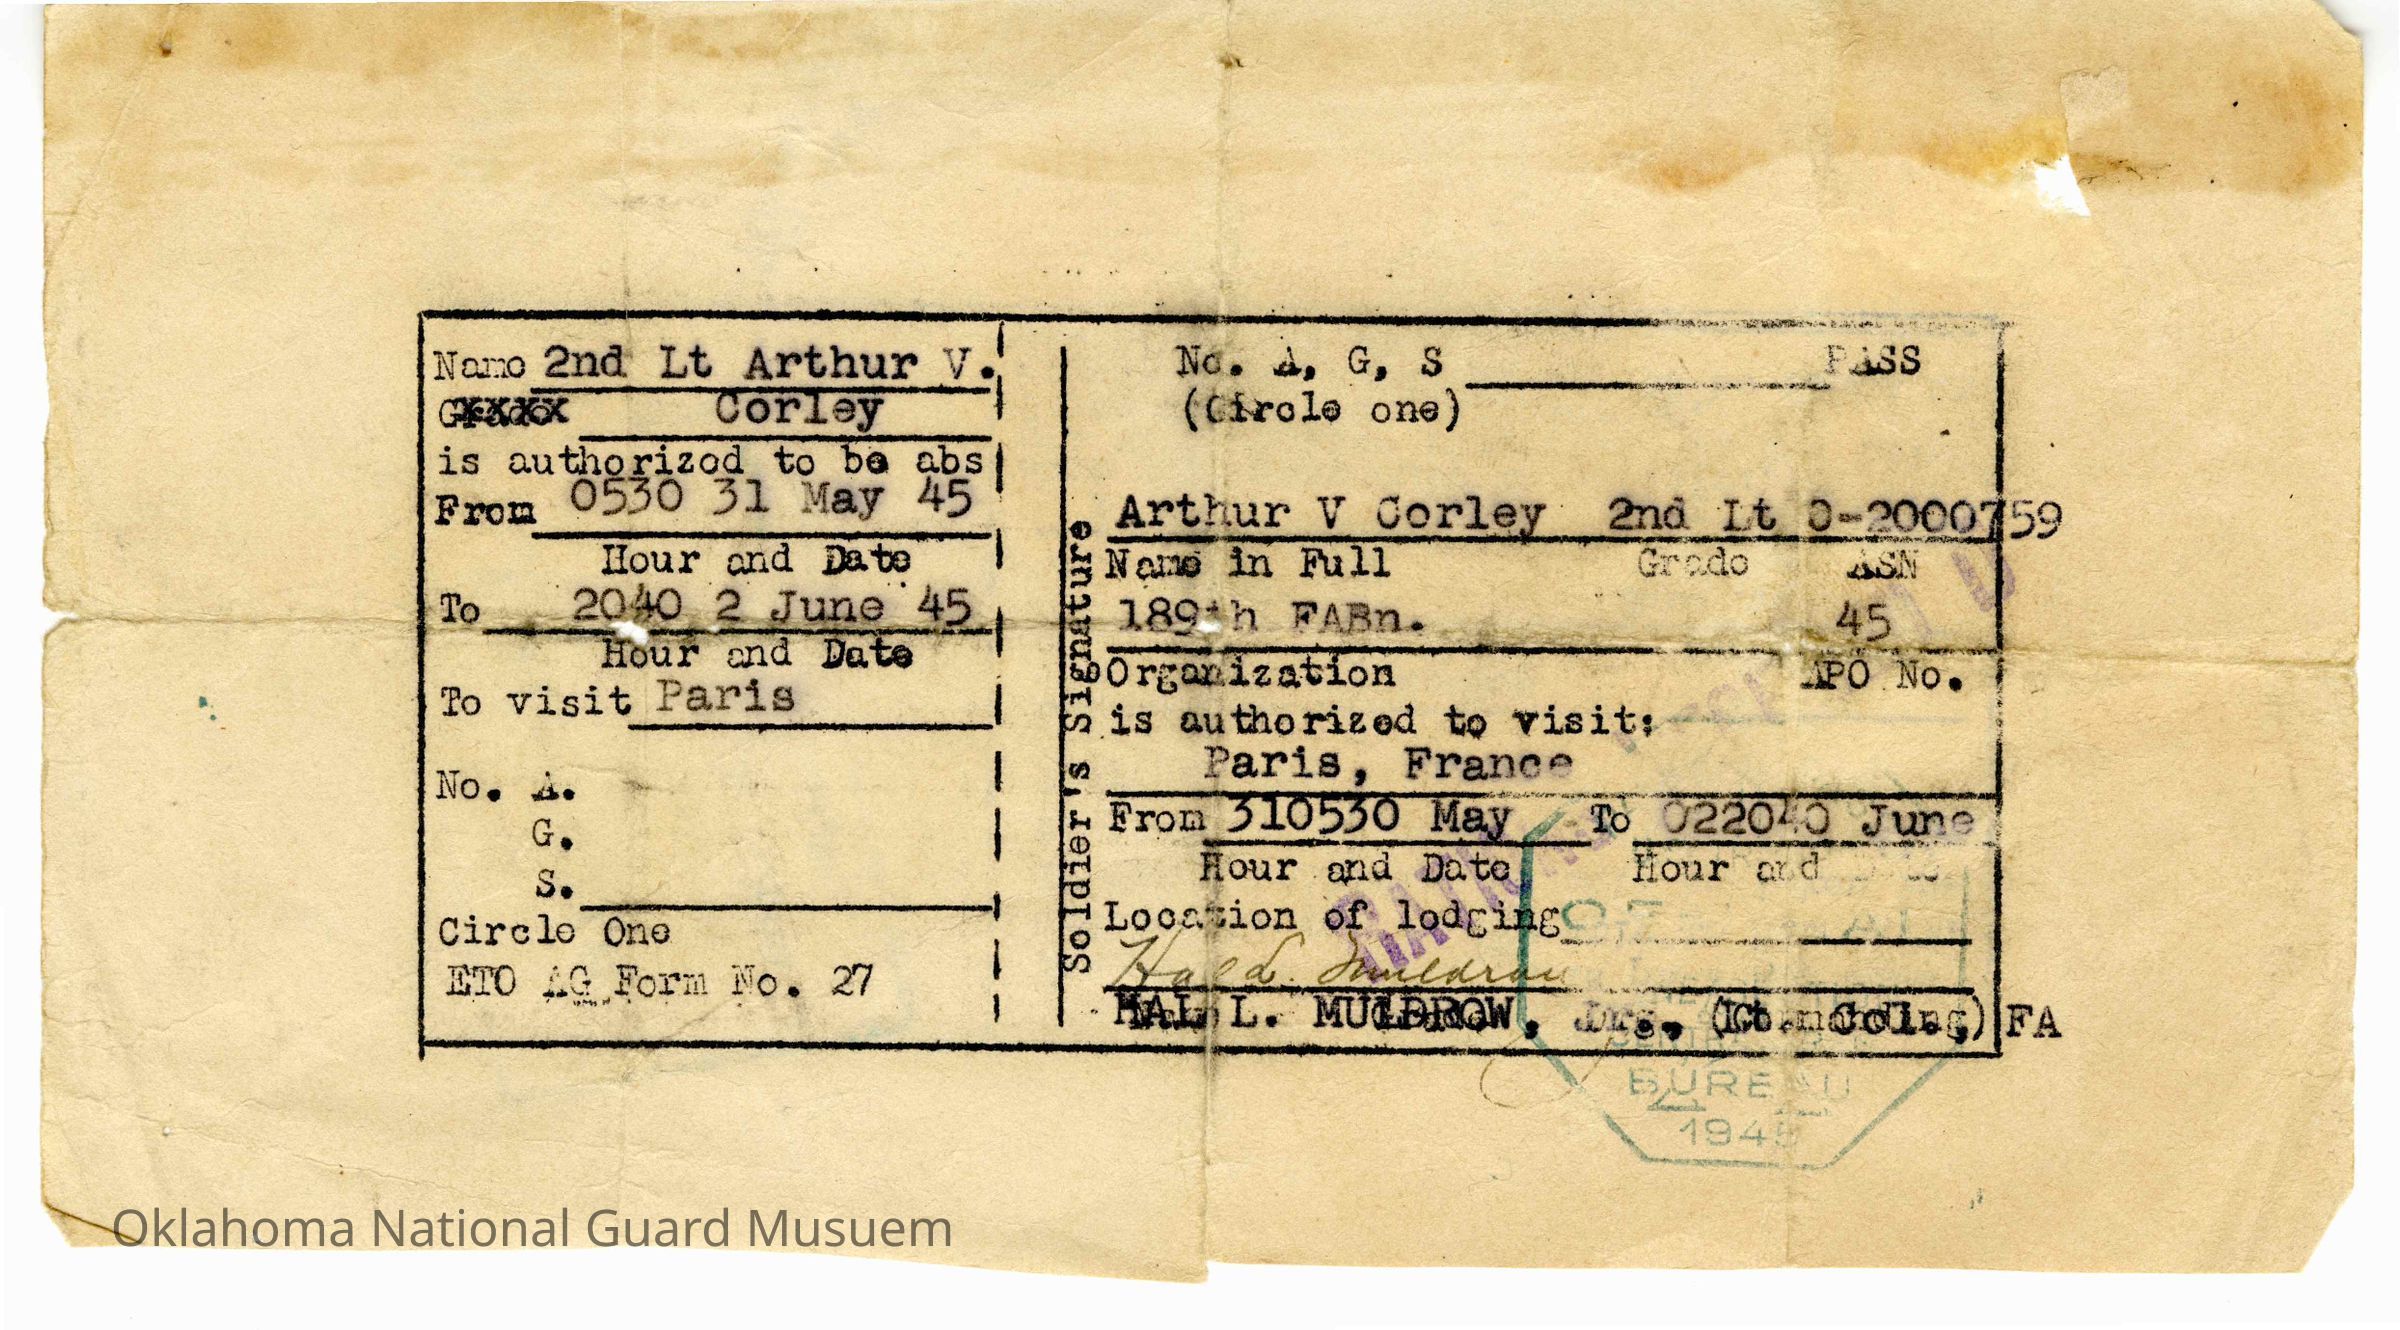 Name 2nd Lt Arthur V.
Grade xxxx Corley
is authorized to be abs
From 0530 31 May 45
Hour and Date
To 2040 2 June 45
Hour and Date
To visit Paris
No. A.
G.
S.
Circle One
ETO AG Form No. 27
Soldier's Signature
No. A, G, S PASS
(Circle one)
Arthur V Corley 2nd Lt O-2000759
Name in Full Grade ASN
189th FABn. 45
Organization APO No.
is authorized to visit:
Paris, France
From 310530 May To 022040 June
Hour and Date Hour and Date
Location of lodging
Hal L. Muldrow
HAL L. MULDROW, Jr., Lt. Col., FA
BUREAU
1945
Oklahoma National Guard Musuem